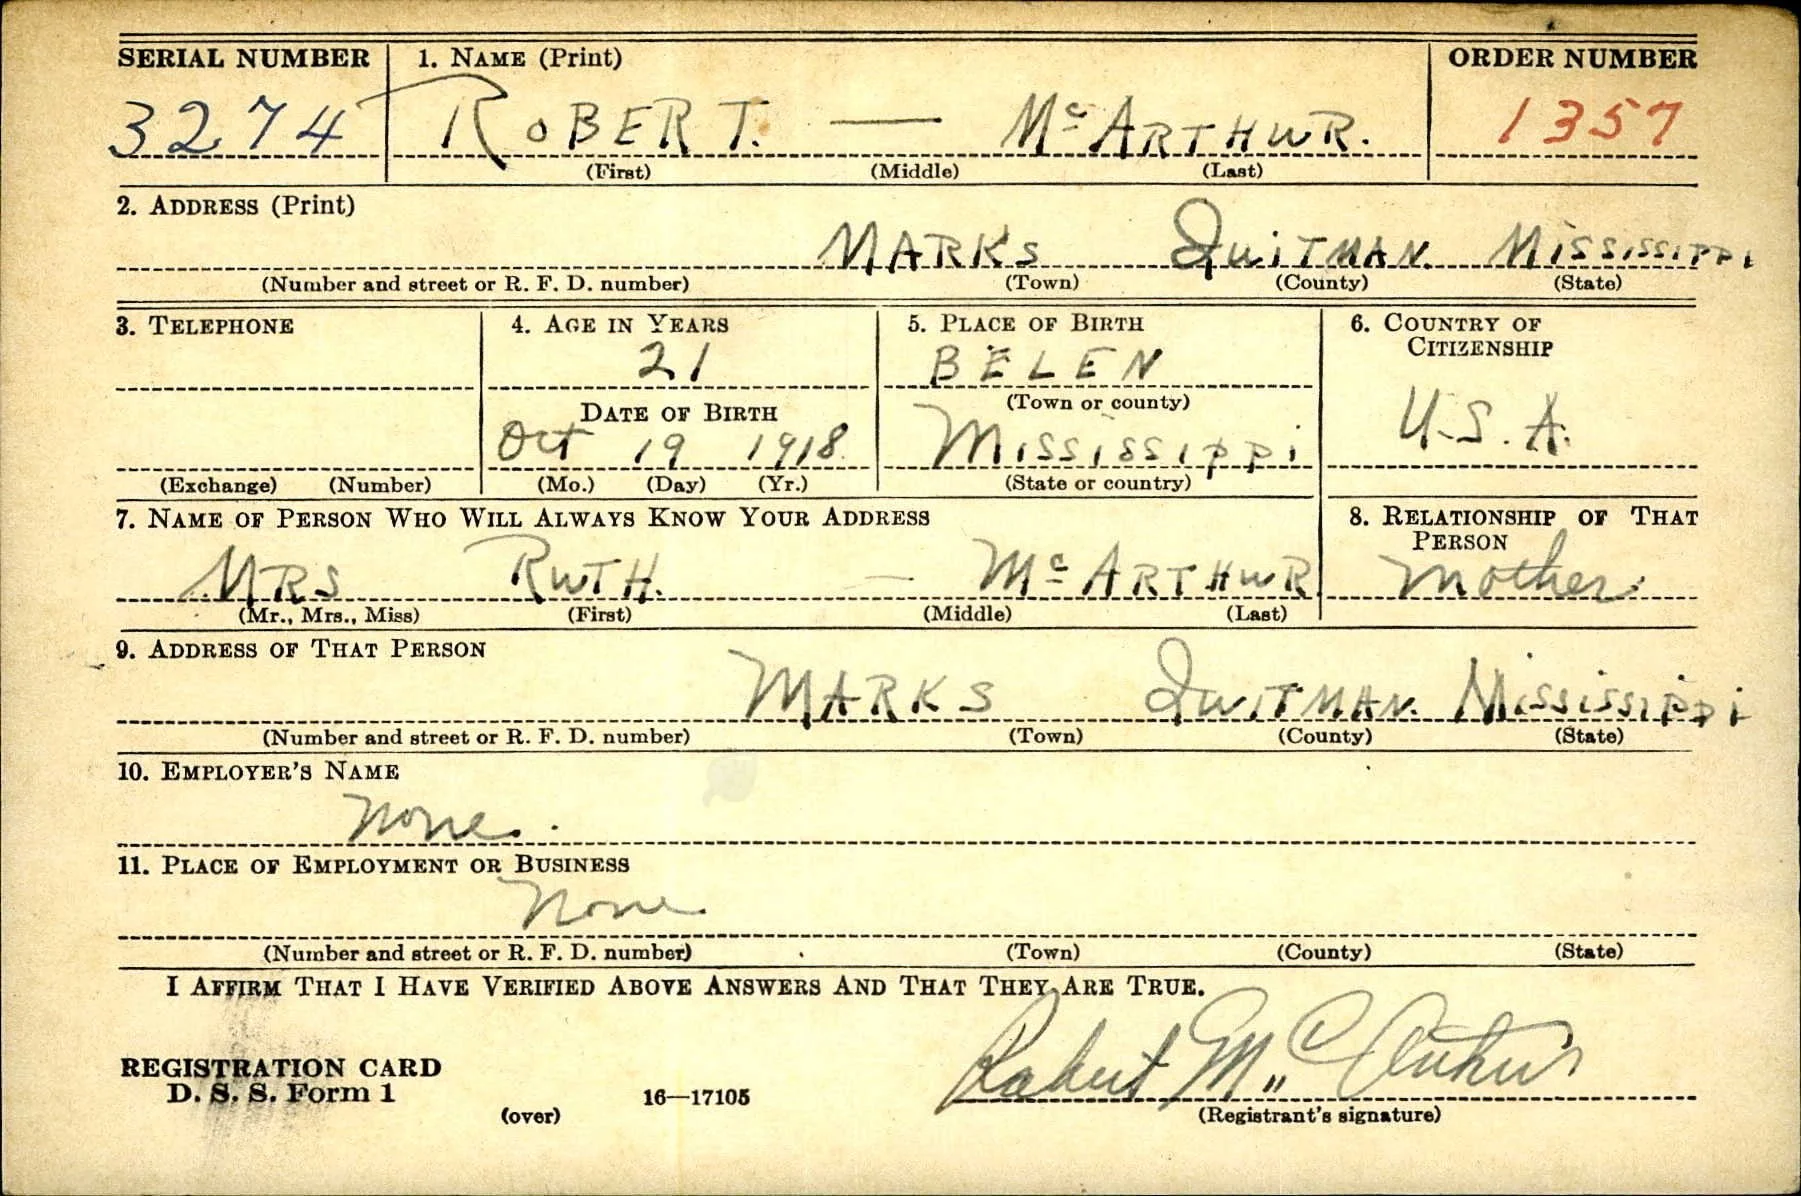 SERIAL NUMBER 1. NAME (Print) ORDER NUMBER
3274 ROBERT. — McARTHUR. 1357
(First) (Middle) (Last)
2. ADDRESS (Print)
MARKS QUITMAN. MISSISSIPPI
(Number and street or R. F. D. number) (Town) (County) (State)
3. TELEPHONE 4. AGE IN YEARS 5. PLACE OF BIRTH 6. COUNTRY OF CITIZENSHIP
21 BELEN
DATE OF BIRTH (Town or county) U.S.A.
Oct 19 1918 MISSISSIPPI
(Exchange) (Number) (Mo.) (Day) (Yr.) (State or country)
7. NAME OF PERSON WHO WILL ALWAYS KNOW YOUR ADDRESS 8. RELATIONSHIP OF THAT PERSON
MRS RUTH. — McARTHUR Mother
(Mr., Mrs., Miss) (First) (Middle) (Last)
9. ADDRESS OF THAT PERSON
MARKS QUITMAN. MISSISSIPPI
(Number and street or R. F. D. number) (Town) (County) (State)
10. EMPLOYER'S NAME
None.
11. PLACE OF EMPLOYMENT OR BUSINESS
None
(Number and street or R. F. D. number) (Town) (County) (State)
I AFFIRM THAT I HAVE VERIFIED ABOVE ANSWERS AND THAT THEY ARE TRUE.
Robert McArthur
REGISTRATION CARD
D. S. S. Form 1 (over) 16—17105 (Registrant's signature)